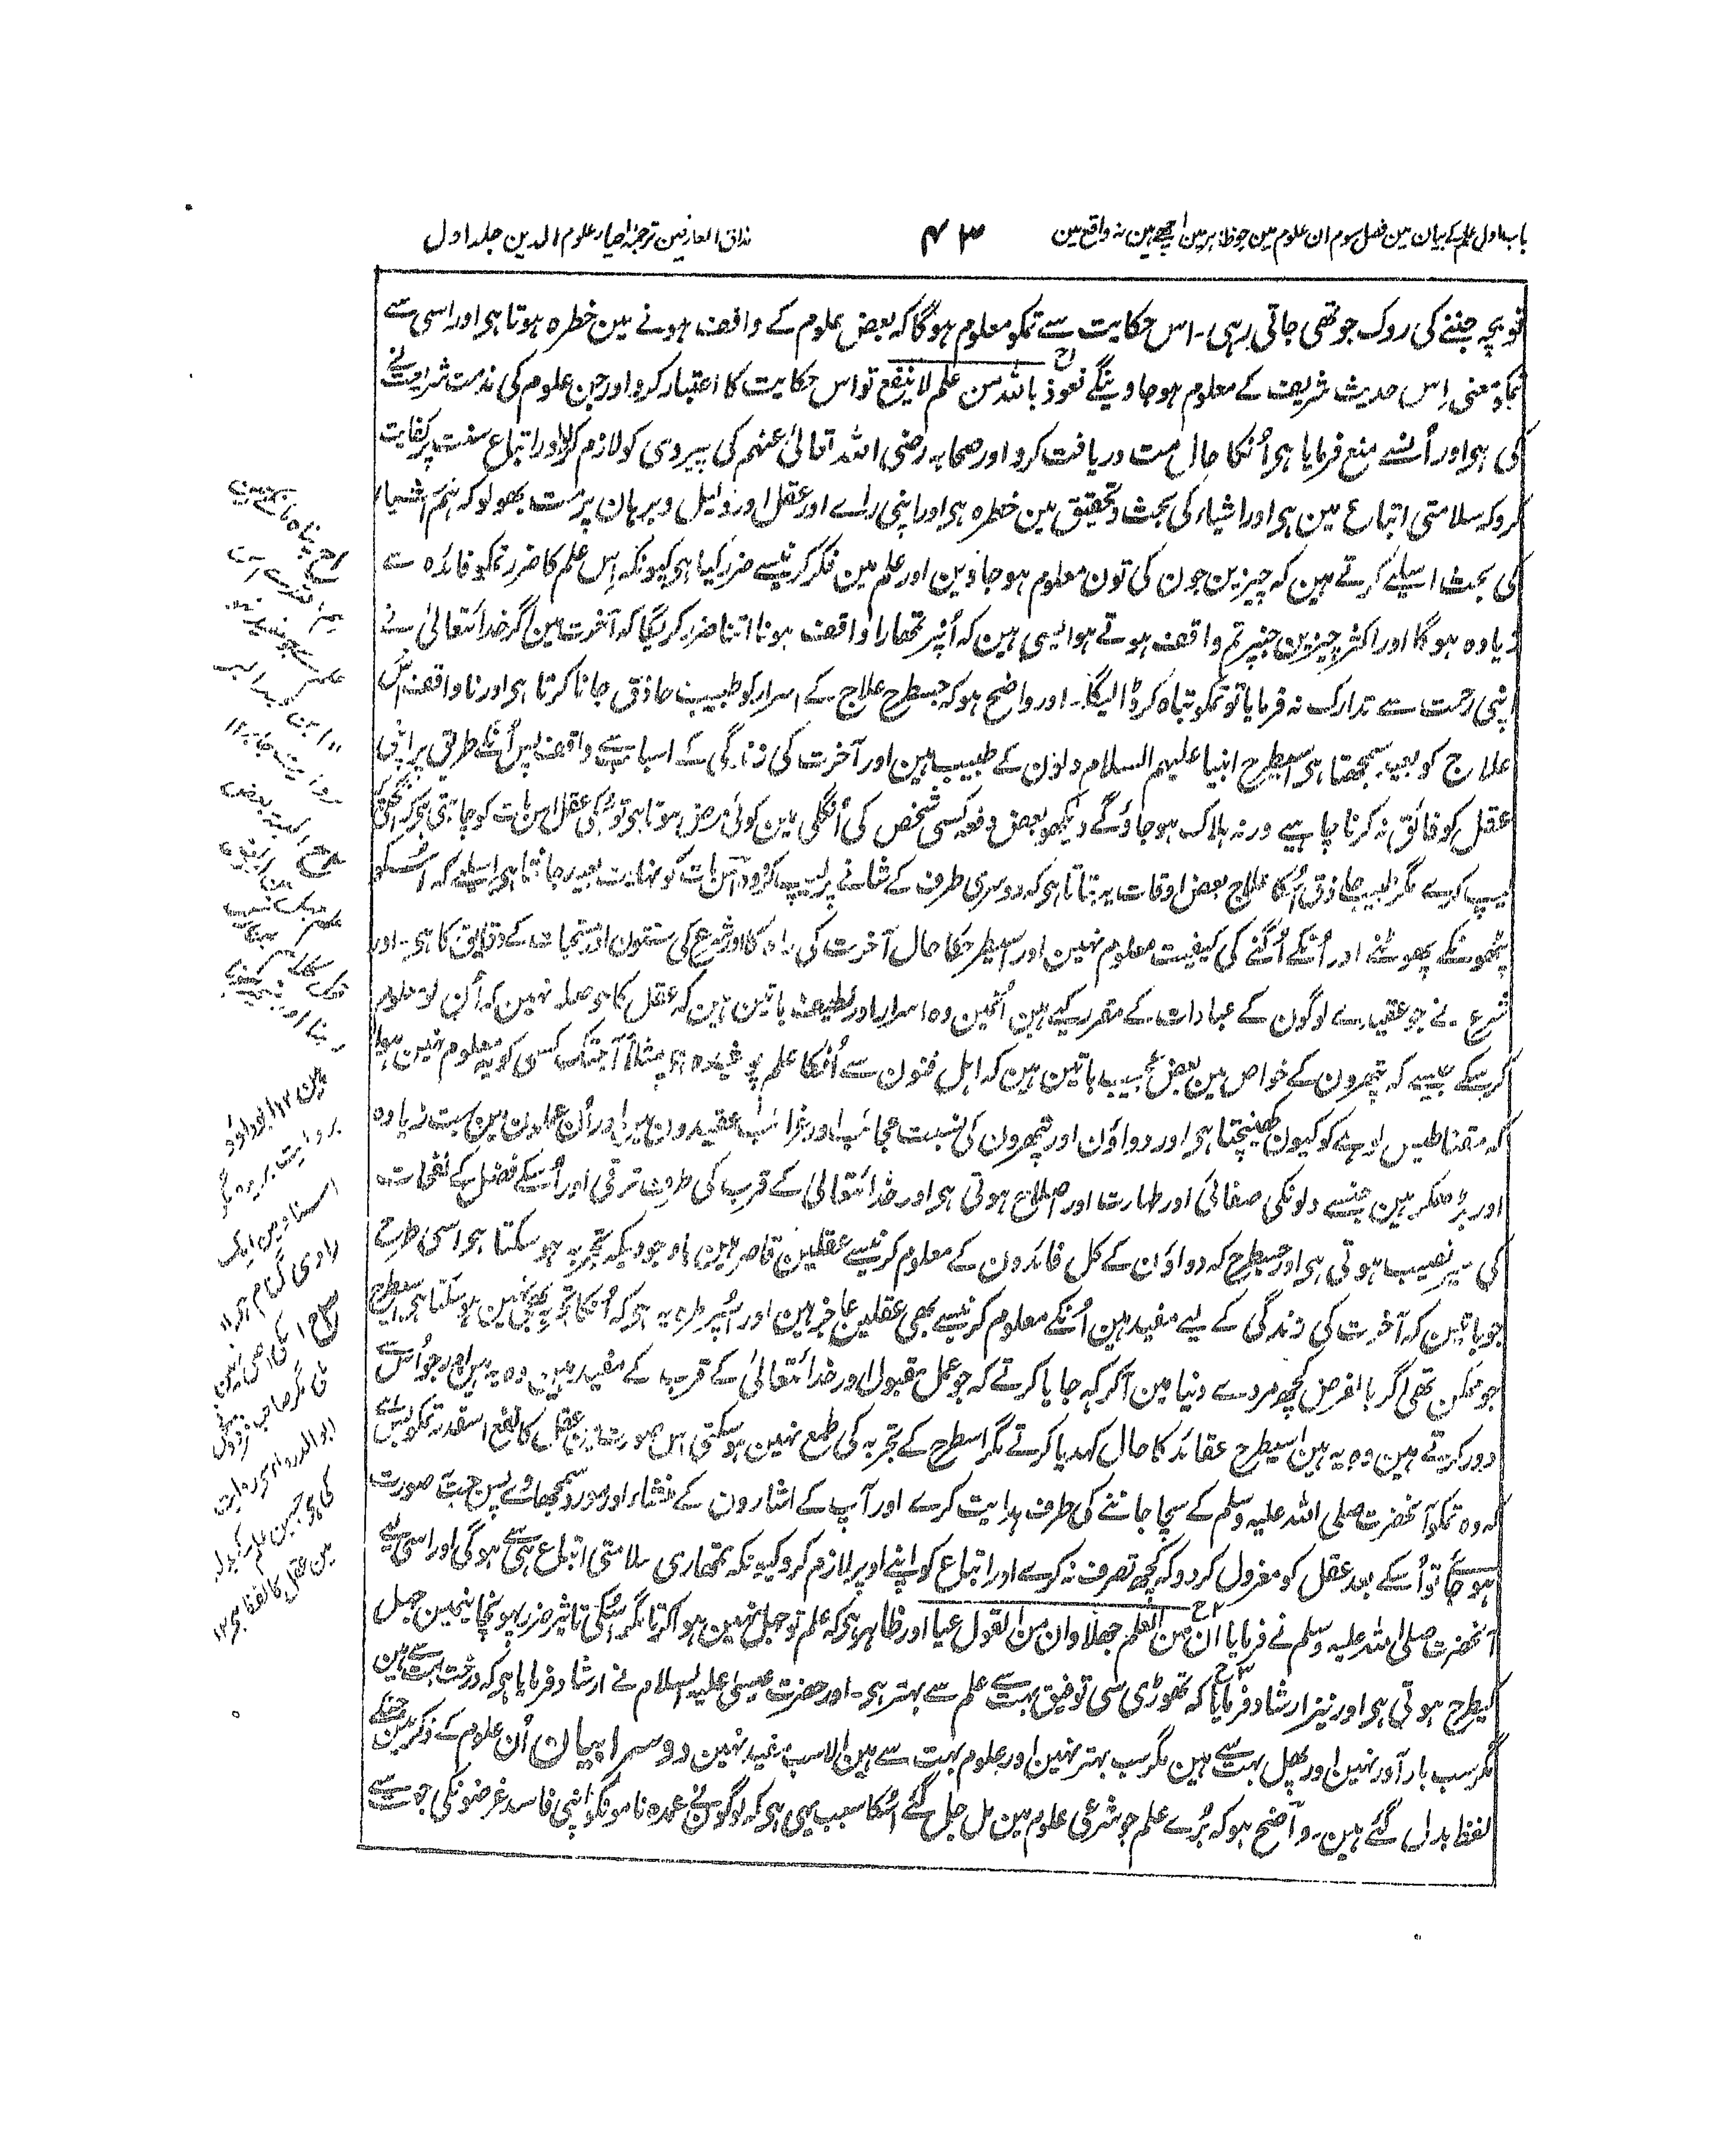 باب اول علم کے بیان مین فصل سوم ان علوم مین جو ظاہر مین اچھے ہین نہ واقع مین
۴۳
مذاق العارفین ترجمۂ احیاء علوم الدین جلد اول
تو بچہ جننے کی روک جو تھی جاتی رہی ۔ اس حکایت سے تمکو معلوم ہوگا کہ بعض علوم کے واقف ہونے مین خطرہ ہوتا ہی اور اسی سے
تمکو معنی اِس حدیث شریف کے معلوم ہو جاوینگے نعوذ باللہ من علم لا ینفع تو اس حکایت کا اعتبار کرو اور جن علوم کی مذمت شریعت نے
کی ہی اور اُنسے منع فرمایا ہی اُنکا حال مت دریافت کرو اور صحابہ رضی اللہ تعالیٰ عنہم کی پیروی کو لازم کرلو اور اتباع سنت پر کفایت
کرو کہ سلامتی اتباع مین ہی اور اشیاء کی بحث و تحقیق مین خطرہ ہی اور اپنی راے اور عقل اور دلیل و برہان پر مت بھولو کہ ہم اشیاء
کی بحث اسلیے کرتے ہین کہ چیزین جون کی تون معلوم ہو جاوین اور علم مین فکر کرنیسے ضرر کیا ہی کیونکہ اِس علم کا ضرر تمکو فائدہ سے
زیادہ ہوگا اور اکثر چیزین جنپر تم واقف ہوتے ہو ایسی ہین کہ اُنپر تمھارا واقف ہونا اتنا ضرر کریگا کہ آخرت مین اگر خدا تعالیٰ نے
اپنی رحمت سے تدارک نہ فرمایا تو تمکو تباہ کر ڈالیگا ۔ اور واضح ہو کہ جسطرح علاج کے اسرار کو طبیب حاذق جانا کرتا ہی اور نا واقف اس
علاج کو بعید سمجھتا ہی اسیطرح انبیا علیہم السلام دلون کے طبیب ہین اور آخرت کی زندگی کے اسباب سے واقف پس اُنکے طریق پر اپنی
عقل کو فائق نہ کرنا چاہیے ورنہ ہلاک ہو جاؤگے دیکھو بعض دفعہ کسی شخص کی اُنگلی مین کوئی مرض ہوتا ہی تو اُسکی عقل اس بات کو چاہتی ہی کہ اُنگلی کو
لیپ کرے مگر طبیب حاذق اُسکا علاج بعض اوقات یہ بتاتا ہی کہ دوسری طرف کے شانے پر لیپ کرو وہ اس بات کو نہایت بعید جانتا ہی اسلیے کہ اُسکو
پٹھونکے پھوٹنے اور اُنکے اُگنے کی کیفیت معلوم نہین اور اسیطرحکا حال آخرت کی راہ کا اور شرع کی سنتون اور مستحبات کے دقایق کا ہی ۔ اور
شرع نے جو عقیدے لوگون کے عبادات کے مقرر کیے ہین اُنمین وہ اسرار اور لطیف باتین ہین کہ عقل کا حوصلہ نہین کہ اُن کو معلوم
کر سکے جیسے کہ پتھرون کے خواص مین بعض عجیب باتین ہین کہ اہل فنون سے اُنکا علم پوشیدہ ہی مثلاً آجتک کسی کو یہ معلوم نہین ہوا
کہ مقناطیس لوہے کو کیون کھینچتا ہی اور دواؤن اور پتھرون کی نسبت عجائب اور غرائب عقیدون مین اور اُن عملون مین بہت زیادہ
اور بڑھکر ہین جنسے دلونکی صفائی اور طہارت اور اصلاح ہوتی ہی اور خدا تعالیٰ کے قرب کی طرف ترقی اور اُسکے فضل کے نفحات
کی سیر نصیب ہوتی ہی اور جسطرح کہ دواؤن کے کل فائدون کے معلوم کرنیسے عقلین قاصر ہین باوجودیکہ تجربہ ہو سکتا ہی اسی طرح
جو باتین کہ آخرت کی زندگی کے لیے مفید ہین اُنکے معلوم کرنیسے بھی عقلین عاجز ہین اور اُسپر طرہ یہ ہی کہ اُنکا تجربہ بھی نہین ہو سکتا ہی اسیطرح
جو ممکن تھی اگر بالفرض کچھ مردے دنیا مین آکر کہہ جایا کرتے کہ جو عمل مقبول اور خدا تعالیٰ کے قرب کے مفید ہین وہ یہ ہین اور جو اُس سے
دور کرتے ہین وہ یہ ہین اسیطرح عقائد کا حال کہدیا کرتے مگر اسطرح کے تجربہ کی طمع نہین ہو سکتی اس صورت مین عقل کا نفع اسقدر تمکو بس ہے
کہ وہ تمکو آنحضرت صلی اللہ علیہ وسلم کے سچا جاننے کی طرف ہدایت کرے اور آپ کے اشارون کے منشاء اور مورد سمجھا دے پس جب یہ صورت
ہو جائے تو اُسکے بعد عقل کو معزول کر دو کہ کچھ تصرف نہ کرے اور اتباع کو اپنے اوپر لازم کرو کیونکہ تمھاری سلامتی اتباع ہی سے ہوگی اور اسی لیے
آنحضرت صلی اللہ علیہ وسلم نے فرمایا ان من العلم جھلا وان من القول عیا اور ظاہر ہی کہ علم تو جہل نہین ہوا کرتا مگر اُسکی تاثیر ضرر پہونچانیمین جہل
کیطرح ہوتی ہی اور نیز ارشاد فرمایا کہ تھوڑی سی توفیق بہت سے علم سے بہتر ہی ۔ اور حضرت عیسیٰ علیہ السلام نے ارشاد فرمایا ہی کہ درخت بہت سے ہین
مگر سب بار آور نہین اور پھل بہت سے ہین مگر سب بہتر نہین اور علوم بہت سے ہین الا سب مفید نہین دوسرا بیان اُن علوم کے ذکر مین جنکے
لفظ بدل گئے ہین ۔ واضح ہو کہ بُرے علم جو شرعی علوم مین مل جل گئے اُسکا سبب یہی ہی کہ لوگون نے عمدہ نامونکو اپنی فاسد غرضونکی جہت سے
پناہ مانگتے ہین
روایت جابر ۱۲
ابو داؤد
بروایت بریدہ مگر
اسناد مین ایک
راوی گمنام ہی ۱۲
اسکی اصل نہین
ملی مگر صاحب فردوس نے
ابو الدرداء سے روایت
کی ہی جسمین علم کے بدلے
مین عقل کا لفظ ہی ۱۲